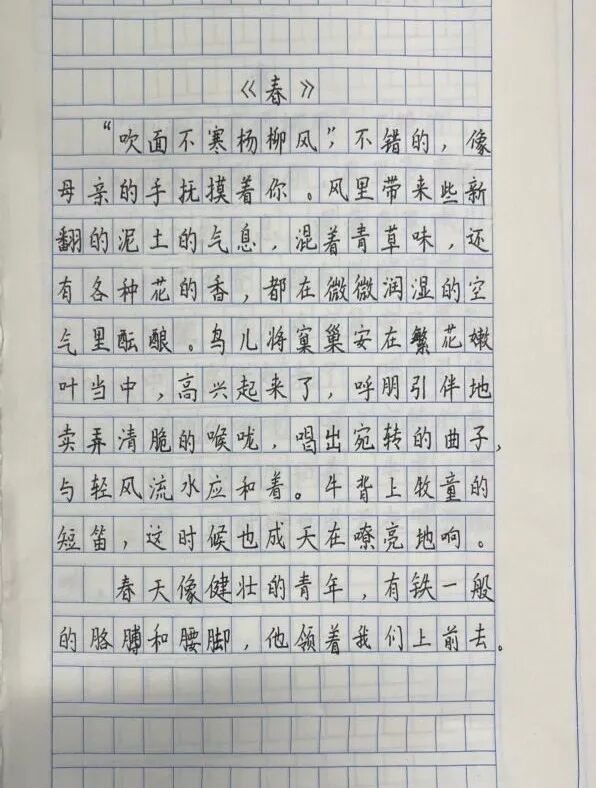 《春》
“吹面不寒杨柳风”，不错的，像
母亲的手抚摸着你。风里带来些新
翻的泥土的气息，混着青草味，还
有各种花的香，都在微微润湿的空
气里酝酿。鸟儿将窠巢安在繁花嫩
叶当中，高兴起来了，呼朋引伴地
卖弄清脆的喉咙，唱出宛转的曲子，
与轻风流水应和着。牛背上牧童的
短笛，这时候也成天在嘹亮地响。
春天像健壮的青年，有铁一般
的胳膊和腰脚，他领着我们上前去。